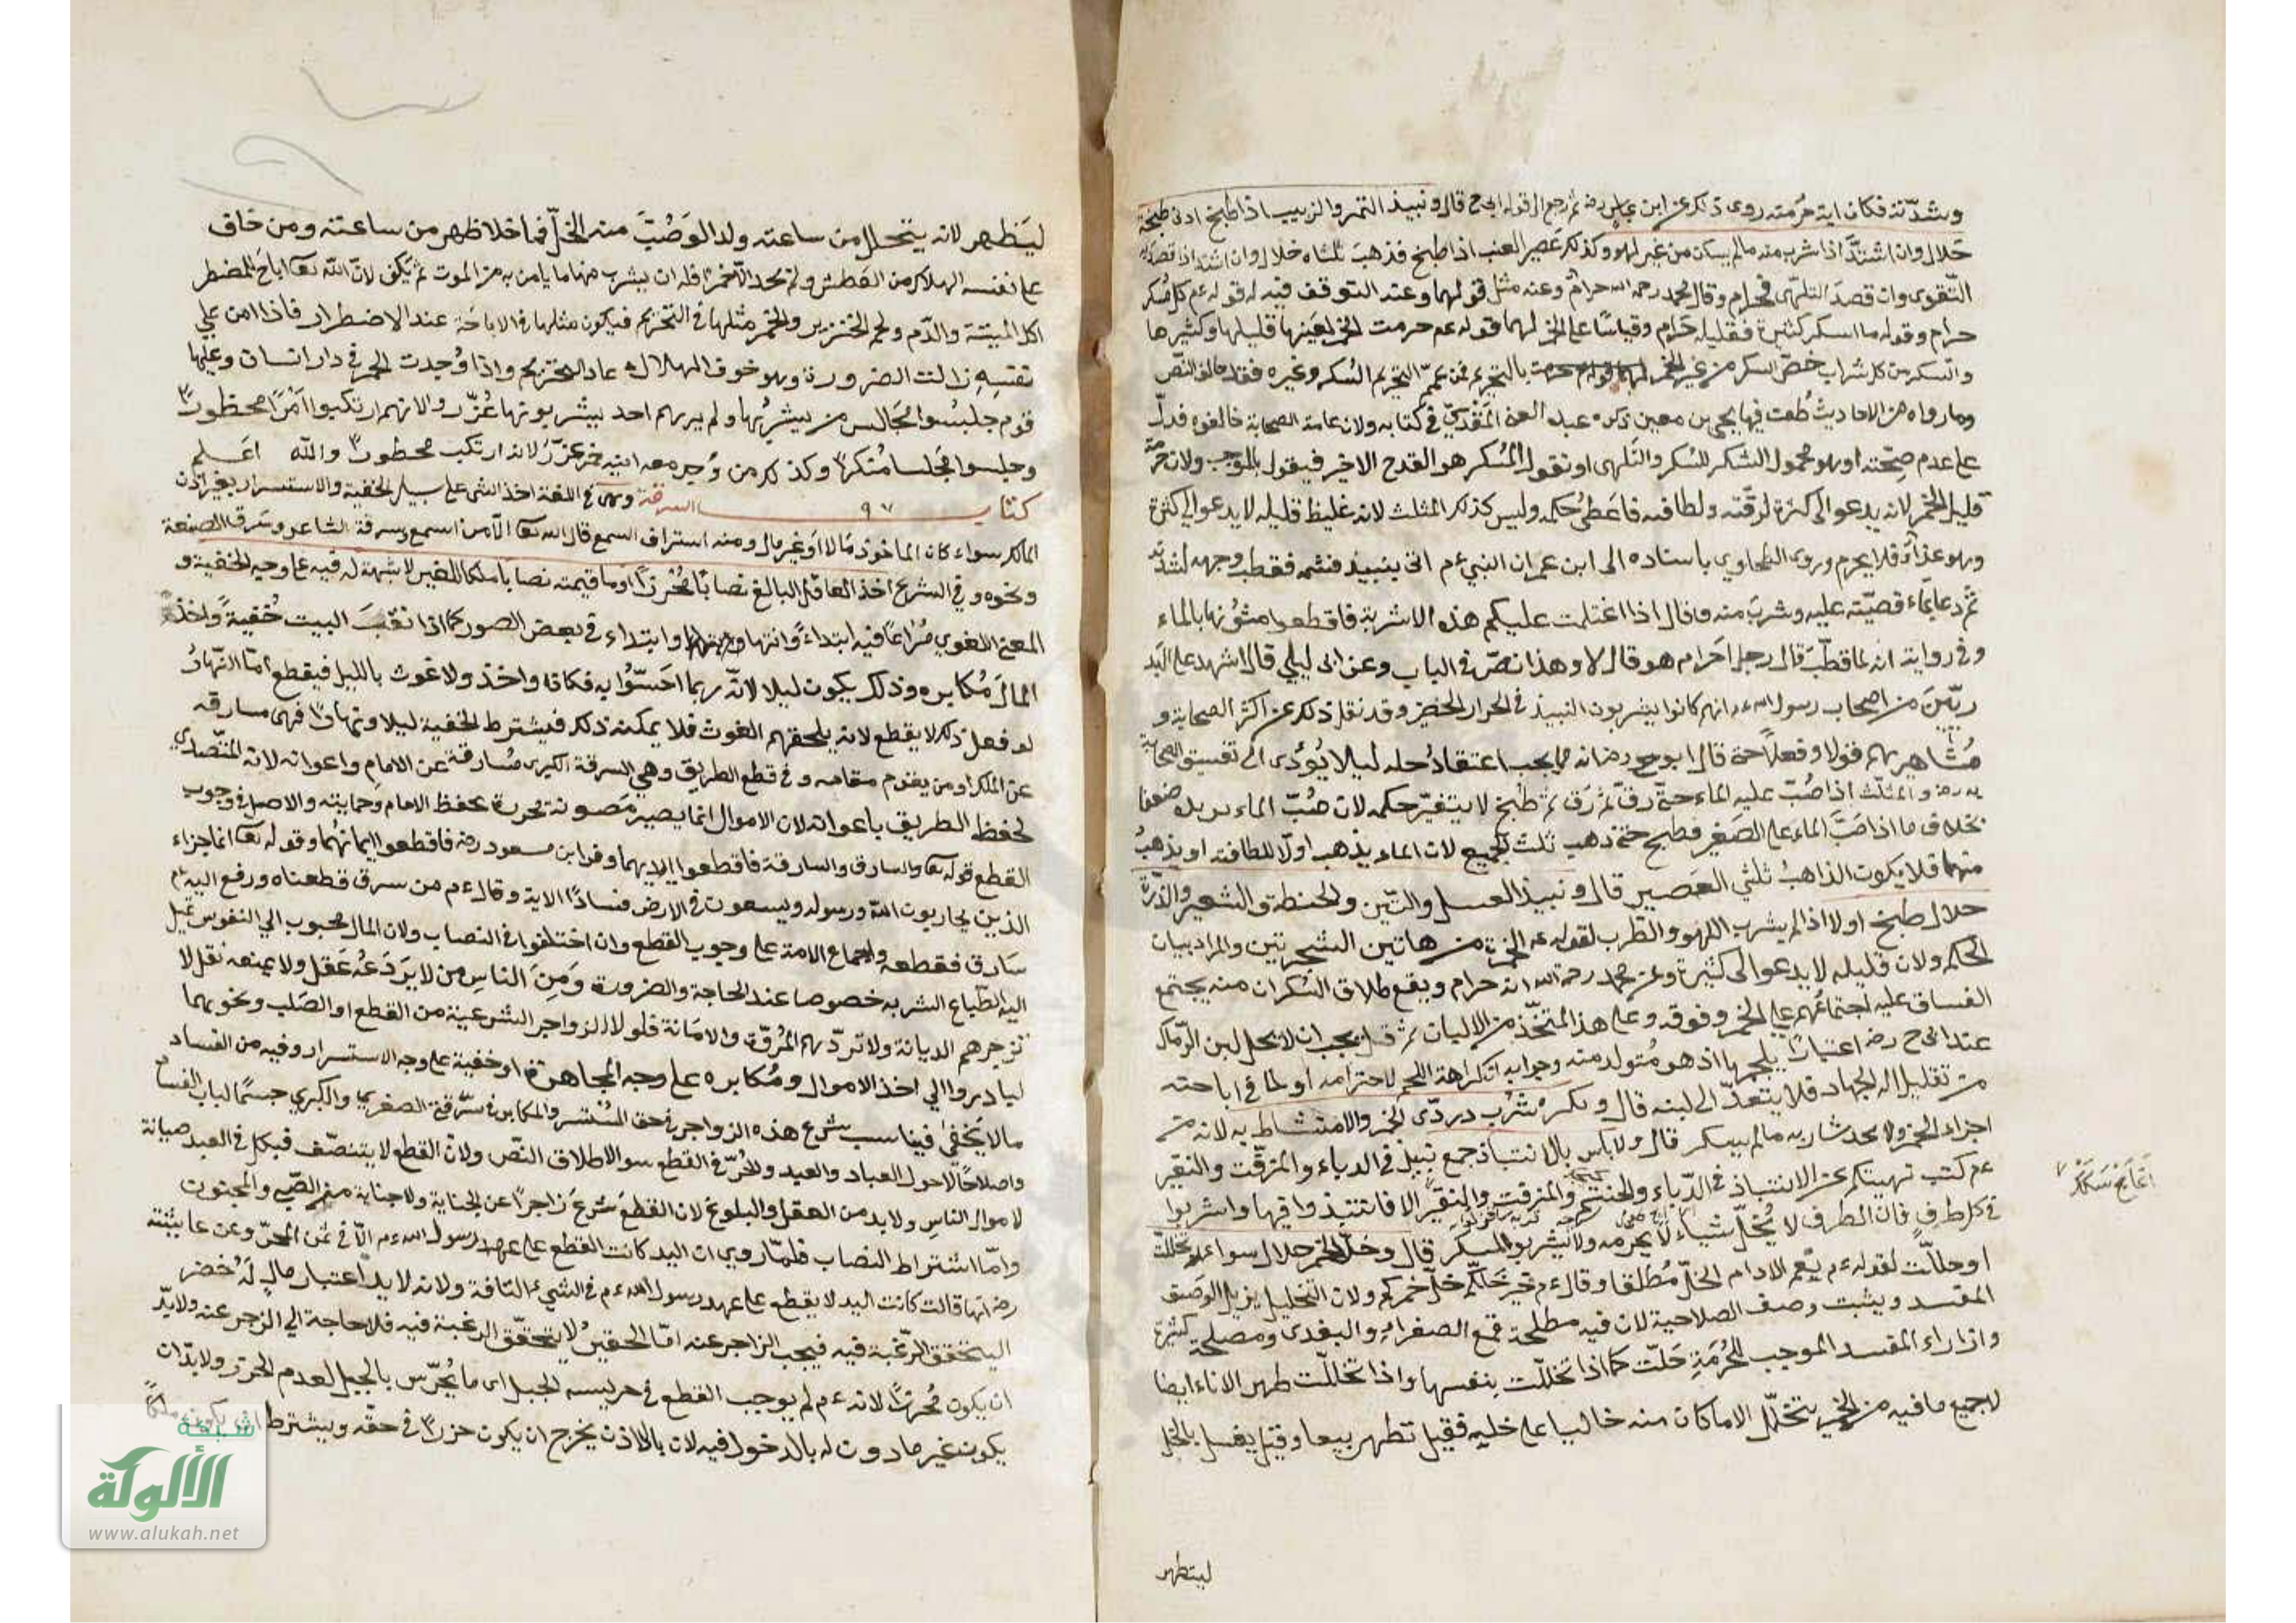 وشدته فكان اية حرمته روى ذكر عن ابن عباس رضه ثم رجع الى قوله ابى ح قال ونبيذ التمر والزبيب اذا طبخ ادنى طبخة
حلال وان اشتد اذا شرب منه مالم يسكر من غير لهو وكذلك عصير العنب اذا طبخ فذهب ثلثاه حلال وان اشتد اذا قصد به
التقوى وان قصد التلهى فحرام وقال محمد رحمه الله حرام وعنه مثل قولهما وعنه التوقف فيه له قوله عم كل مسكر
حرام وقوله ما اسكر كثيره فقليله حرام وقياسا على الخمر لهما قوله عم حرمت الخمر لعينها قليلها وكثيرها
والسكر من كل شراب خص السكر من غير الخمر بالتحريم فمن عمم التحريم السكر وغيره فقد خالف النص
وما رواه من الاحاديث طعن فيها يحيى بن معين ذكره عبد الغنى المقدسي في كتابه ولان عامة الصحابة خالفوه فدل
على عدم صحته او هو محمول السكر للسكر والتلهى او نقول المسكر هو القدح الاخير فيقول بالموجب ولان حرمة
قليل الخمر لانه يدعوا الى كثرة لرقته ولطافته فاعطى حكمه وليس كذلك المثلث لانه غليظ قليله لا يدعوا الى كثرة
وهو غذاء فلا يحرم وروى الطحاوي باسناده الى ابن عمر ان النبي عم اتى بنبيذ فشمه فقطب وجهه لشدته
ثم دعا بماء فصبه عليه وشرب منه وقال اذا اغتلمت عليكم هذه الاشربة فاقطعوا متونها بالماء
وفي رواية انه لما قطب قال رجل احرام هو قال لا وهذا نص في الباب وعن ابى ليلى قال اشهد على البد
ريين من اصحاب رسول الله عم انهم كانوا يشربون النبيذ في الجرار الخضر وقد نقل ذلك عن اكثر الصحابة و
مشاهيرهم قولا وفعلا حتى قال ابو ح رضه انه مما يجب اعتقاد حله ليلا يؤدى الى تفسيق الصحابة
رضه والمثلث اذا صب عليه الماء حتى رق ثم طبخ لا يتغير حكمه لان صب الماء يزيده ضعفا
بخلاف ما اذا صب الماء على العصير فطبخ حتى ذهب ثلث الجميع لان الماء يذهب اولا للطافته او يذهب
منهما فلا يكون الذاهب ثلثي العصير قال ونبيذ العسل والتين والحنطة والشعير والذرة
حلال طبخ او لا اذا لم يشرب اللهو والطرب لقوله عم الخمر من هاتين الشجرتين والمراد بيان
الحكم ولان قليله لا يدعوا الى كثيره وعن محمد رحمه الله انه حرام ويقع طلاق السكران منه يجتمع
الفساق عليه اجتماعهم على الخمر وفوقه وعلى هذا المتخذ من الالبان ثم قيل يجب ان لا يحل لبن الرماك
عند ابى ح رضه اعتبارا بلحمها اذ هو متولد منه وجوابه ان كراهة اللحم لاحترامه او لما في اباحته
من تقليل الة الجهاد فلا يتعدى الى لبنه قال ويكره شرب دردى الخمر والامتشاط به لانه من
اجزاء الخمر ولا يحد شاربه مالم يسكر قال ولا باس بالانتباذ جمع نبيذ في الدباء والمزفت والنقير
عم كنت نهيتكم عن الانتباذ في الدباء والحنتم والمزفت والنقير الا فانتبذوا فيها واشربوا
في كل ظرف فان الظرف لا يحل شيئا ولا يحرمه ولا تشربوا المسكر قال وخل الخمر حلال سواء تخللت
او خللت لقوله عم نعم الادام الخل مطلقا وقال عم خير خلكم خل خمركم ولان التخليل يزيل الوصف
المفسد ويثبت وصف الصلاحية لان فيه مصلحة قمع الصفراء والتغدى ومصلحة كثيرة
واذا زاد المفسد الموجب للحرمة حلت كما اذا تخللت بنفسها واذا تخللت طهر الاناء ايضا
لجميع ما فيه من الخمر يتخلل الا ما كان منه خاليا على خليه فقيل تطهر تبعا وقيل يغسل بالخل
ليتطهر
ليتطهر لانه يتحلل من ساعته ولد الوصب منه الخل فما خلا ظهر من ساعته ومن خاف
على نفسه الهلاك من العطش ولم يجد الا خمرا فله ان يشرب منها ما يامن به من الموت ثم يكف لان الله تعا اباح للمضطر
اكل الميتة والدم ولحم الخنزير والخمر مثلها في التحريم فيكون مثلها في الاباحة عند الاضطرار فاذا امن على
نفسه زالت الضرورة وهو خوف الهلاك عاد التحريم واذا وجدت الخمر في دار انسان وعليها
قوم جلسوا مجالس من يشربها ولم يرهم احد يشربونها عزروا لانهم ارتكبوا امرا محظورا
وجلسوا مجلسا منكرا وكذلك من وجد معه انية خمر عزر لانه ارتكب محظورا والله اعلم
كتاب ٩٧ السرقة وهى في اللغة اخذ الشى على سبيل الخفية والاستسرار بغير اذن
المالك سواء كان الماخوذ مالا او غير مال ومنه استراق السمع قال الله تعا الا من استرق السمع وسرقة الشاعر وسرق الصنعة
ونحوه وفي الشرع اخذ العاقل البالغ نصابا محرزا او ما قيمته نصابا ملكا للغير لا شبهة له فيه على وجه الخفية و
المعنى اللغوي مراعا فيه ابتداء وانتهاء وابتداء في بعض الصور كما اذا نقب البيت خفية واخذ
المال مكابره وذلك يكون ليلا لانه ربما احسوا به فكاثره واخذ ولا غوث بالليل فيقطع اما النهار
لو فعل ذلك لا يقطع لانه يلحقهم الغوث فلا يمكنه ذلك فيشترط الخفية ليلا ونهارا فهى مسارقه
عن المالك او من يقوم مقامه وفي قطع الطريق وهي السرقة الكبرى مسارقة عن الامام واعوانه لانه المتصدي
لحفظ الطريق باعوانه لان الاموال انما يصير مصونة محرزة بحفظ الامام وحمايته والاصل في وجوب
القطع قوله تعا والسارق والسارقة فاقطعوا ايديهما وقرا ابن مسعود رضه فاقطعوا ايمانهما وقوله تعا انما جزاء
الذين يحاربون الله ورسوله ويسعون في الارض فسادا الاية وقال عم من سرق قطعناه ورفع اليه عم
سارق فقطعه واجماع الامة على وجوب القطع وان اختلفوا في النصاب ولان المال محبوب الى النفوس تميل
اليه الطباع البشريه خصوصا عند الحاجة والضرورة ومن الناس من لا يردعه عقل ولا يمنعه نقل لا
تزجرهم الديانة ولا تردهم المروة والامانة فلولا الزواجر الشرعية من القطع او الصلب ونحوهما
لبادروا الى اخذ الاموال ومكابره على وجه المجاهرة او خفية على وجه الاستسرار وفيه من الفساد
مالا يخفى فيناسب شرع هذه الزواجر في حق المستسر والمكابر في سرقتي الصغرى والكبرى حسما لباب الفساد
واصلاحا لاحوال العباد والعبد والحر في القطع سوا لاطلاق النص ولان القطع لا يتنصف فيكل في العبد صيانة
لاموال الناس ولا بد من العقل والبلوغ لان القطع شرع زاجرا عن الجناية ولا جناية من الصبى والمجنون
واما اشتراط النصاب فلما روي ان اليد كانت القطع على عهد رسول الله عم الا في ثمن المجن وعن عايشة
رضه انها قالت كانت اليد لا يقطع على عهد رسول الله عم في الشيء التافة ولانه لا بد اعتبار مال له خضر
اليتحقق الرغبة فيه فيجب الزاجر عنه اما الحقير لا يتحقق الرغبة فيه فلا حاجة الى الزجر عنه ولا بد
ان يكون محرزا لانه عم لم يوجب القطع في حريسه الجبل اى ما يحرس بالجبل لعدم الحرز ولا بد ان
يكون غير ماذون له بالدخول فيه لان بالاذن يخرج ان يكون حرزا في حقه ويشترط ان يكون ملكا
شبكة
الألوكة
www.alukah.net